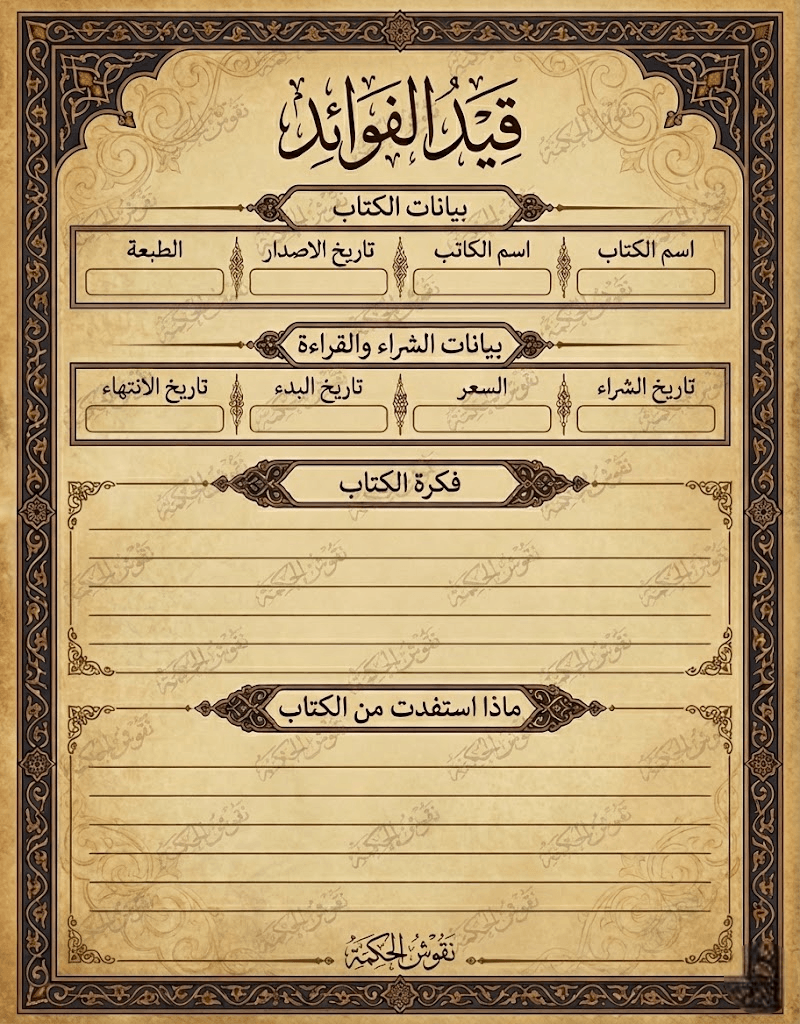 قَيْدُ الفَوَائِدِ
بيانات الكتاب
اسم الكتاب اسم الكاتب تاريخ الاصدار الطبعة
بيانات الشراء والقراءة
تاريخ الشراء السعر تاريخ البدء تاريخ الانتهاء
فكرة الكتاب
ماذا استفدت من الكتاب
نَقُوشُ الحِكْمَةِ